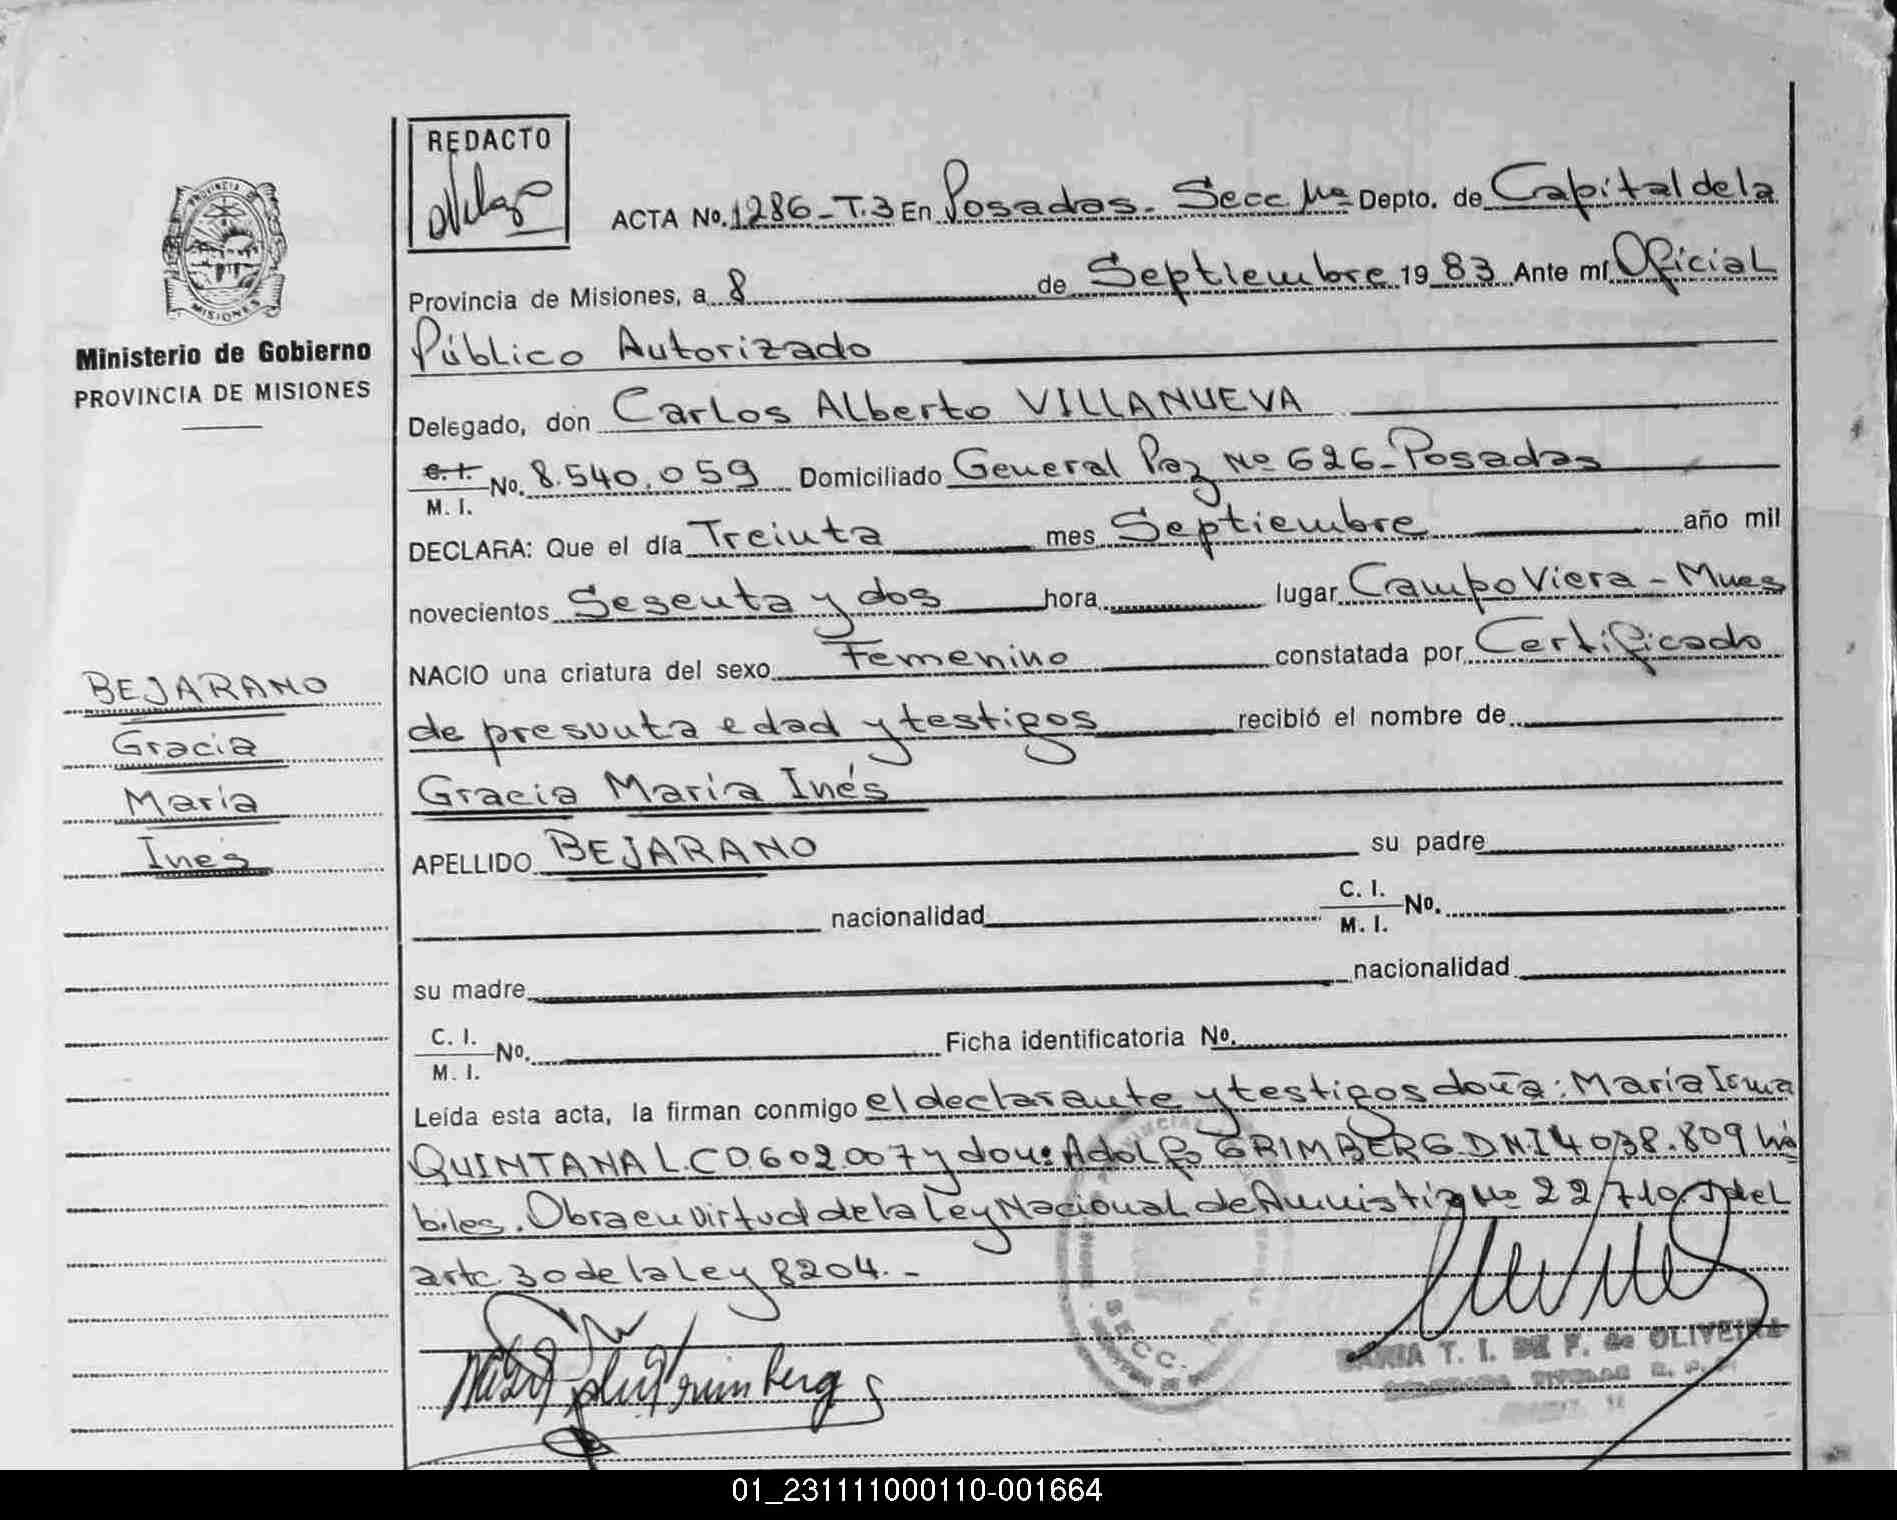 REDACTO
ACTA No. 1286-T.3 En Posadas. Secc Depto. de Capital de la
Provincia de Misiones, a 8 de Septiembre 1983 Ante mí Oficial
PROVINCIA DE
MISIONES
Ministerio de Gobierno
PROVINCIA DE MISIONES
Público Autorizado
Delegado, don Carlos Alberto VILLANUEVA
C. I.
M. I. No. 8.540.059 Domiciliado General Paz Nº 626-Posadas
DECLARA: Que el día Treinta mes Septiembre año mil
novecientos Sesenta y dos hora lugar Campo Viera - Mnes
NACIO una criatura del sexo Femenino constatada por Certificado
BEJARANO
Gracia
María
Ines
de presunta edad y testigos recibió el nombre de
Gracia María Inés
APELLIDO BEJARANO su padre
nacionalidad C. I. M. I. No.
su madre nacionalidad
C. I. M. I. No. Ficha identificatoria No.
Leída esta acta, la firman conmigo el declarante y testigos doña: María Irma
QUINTANA L.C 0.602.007 y don: Adolfo GRIMBERG D.N.I 4038.809 há
biles. Obra en virtud de la Ley Nacional de Amnistía Nº 22710 del
artc 30 de la Ley 8204.-
SECC.
MARIA T. I. DE F. de OLIVEIRA
01_231111000110-001664